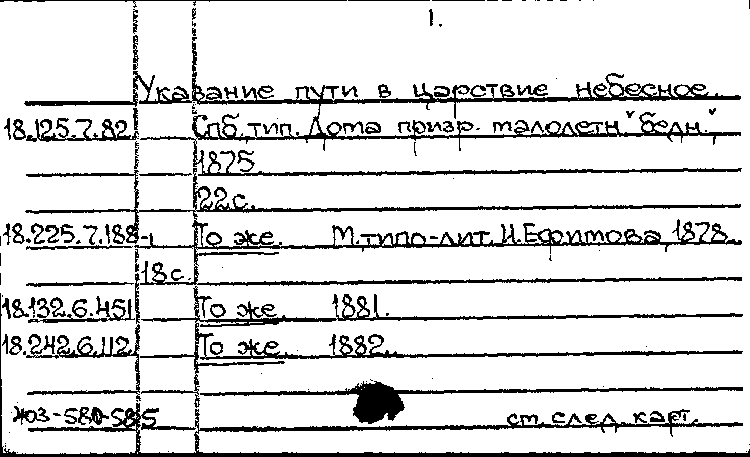 1.
Указание пути в царствие небесное.
18.125.7.82 Спб, тип. Дома призр. малолетн. бедн.,
1875.
22с.
18.225.7.188 То же. М., типо-лит. И. Ефимова, 1878.
18с.
18.132.6.451 То же. 1881.
18.242.6.112 То же. 1882.
ЖОЗ-580-585 см. след. карт.